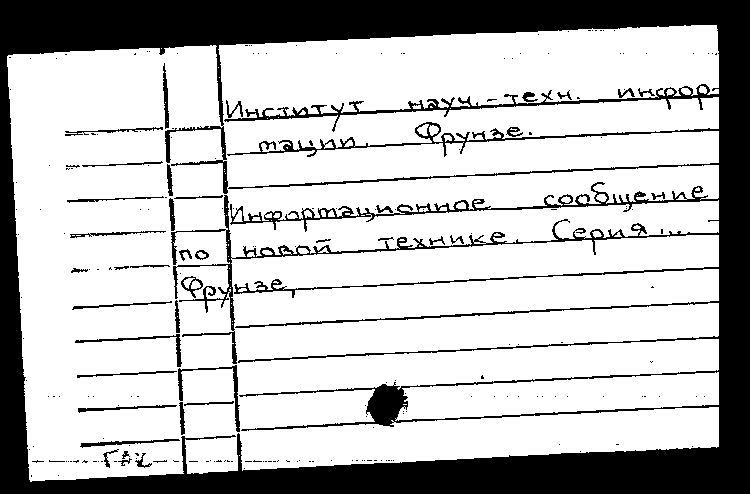 Институт науч.-техн. инфор-
мации. Фрунзе.
Информационное сообщение
по новой технике. Серия... -
Фрунзе,